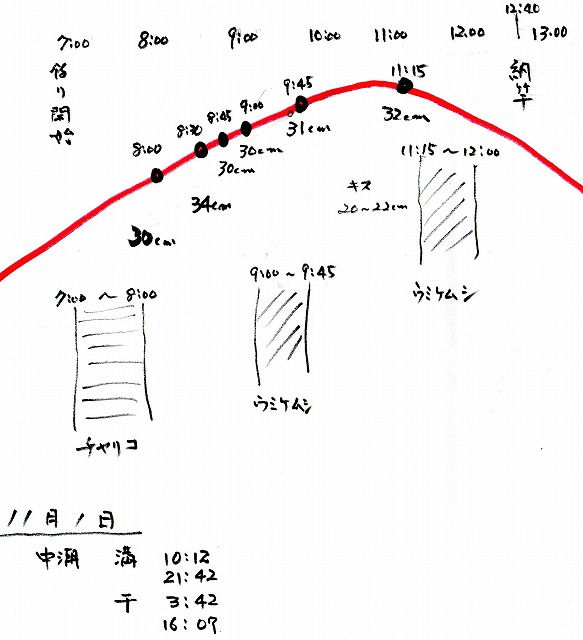 12:40
7:00 8:00 9:00 10:00 11:00 12:00 13:00
釣り開始
納竿
8:00
8:30
8:45
9:00
9:45
11:15
30cm
34cm
30cm
30cm
31cm
32cm
11:15 ~ 12:00
キス
20~22cm
ウミケムシ
9:00 ~ 9:45
ウミケムシ
7:00 ~ 8:00
チャリコ
11月1日
中潮 満 10:12
21:42
干 3:42
16:09